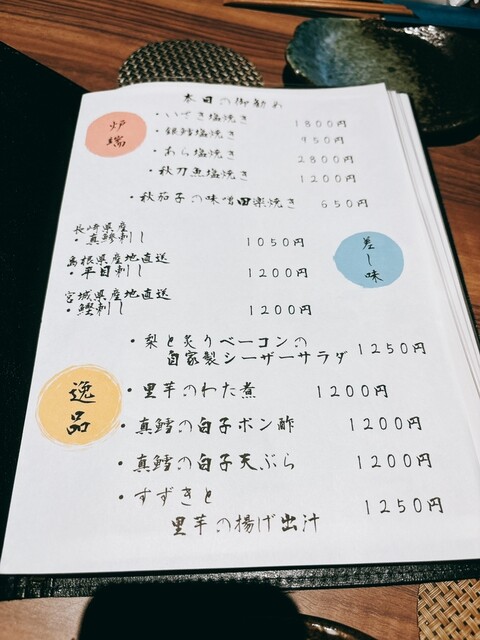 本日の御勧め
炉端
・いさき塩焼き 1800円
・銀鱈塩焼き 950円
・あら塩焼き 2800円
・秋刀魚塩焼き 1200円
・秋茄子の味噌田楽焼き 650円
差し味
長崎県産
・真鯵刺し 1050円
島根県産地直送
・平目刺し 1200円
宮城県産地直送
・鰹刺し 1200円
逸品
・梨と炙りベーコンの
自家製シーザーサラダ 1250円
・里芋のわた煮 1200円
・真鱈の白子ポン酢 1200円
・真鱈の白子天ぷら 1200円
・すずきと
里芋の揚げ出汁 1250円